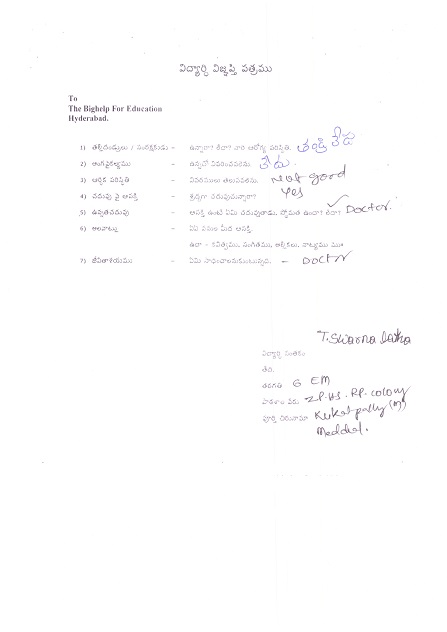 విద్యార్థి విజ్ఞప్తి పత్రము
To
The Bighelp For Education
Hyderabad.
1) తల్లిదండ్రులు / సంరక్షకుడు - ఉన్నారా? లేదా? వారి ఆరోగ్య పరిస్థితి. తండ్రి లేడు
2) అంగవైకల్యము - ఉన్నచో వివరించవలెను. లేదు.
3) ఆర్థిక పరిస్థితి - వివరములు తెలుపవలెను. Not good
4) చదువు పై ఆసక్తి - శ్రద్ధగా చదువుచున్నారా? Yes
5) ఉన్నతచదువు - ఆసక్తి ఉంటే ఏమి చదువుతాడు, స్తోమత ఉందా? లేదా? Doctor.
6) అలవాట్లు - ఏఏ పనుల మీద ఆసక్తి.
ఉదా - కవిత్వము, సంగీతము, ఆటలు, నాట్యము
7) జీవితాశయము - ఏమి సాధించాలనుకుంటున్నది. - Doctor
T. Swarna latha
విద్యార్థి సంతకం
తేది.
తరగతి 6 EM
పాఠశాల పేరు Z.P.HS. RP. colony
పూర్తి చిరునామా Kukatpally (M)
Medchal.